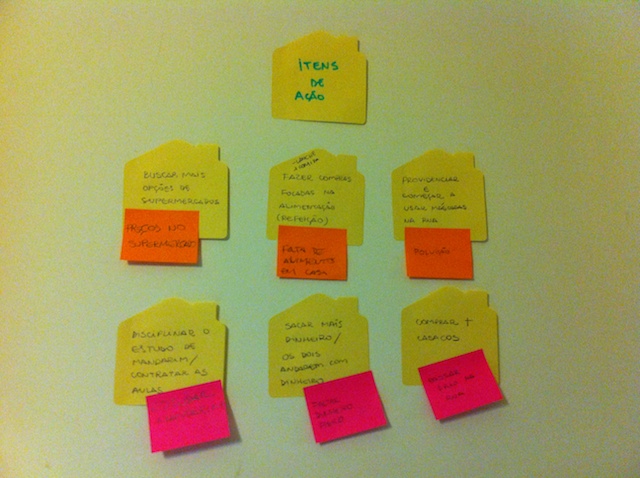 ITENS
DE
AÇÃO
BUSCAR MAIS
OPÇÕES DE
SUPERMERCADOS
PREÇOS NO
SUPERMERCADO
FAZER COMPRAS
FOCADAS NA
ALIMENTAÇÃO
(REFEIÇÃO)
FALTA DE
ALIMENTO
EM CASA
PROVIDENCIAR
E
COMEÇAR A
USAR MÁSCARAS
NA RUA
POLUIÇÃO
DISCIPLINAR O
ESTUDO DE
MANDARIM/
CONTRATAR AS
AULAS
SACAR MAIS
DINHEIRO/
OS DOIS
ANDAREM COM
DINHEIRO
DINHEIRO
COMPRAR +
CASACOS
PASSAR FRIO NA
RUA